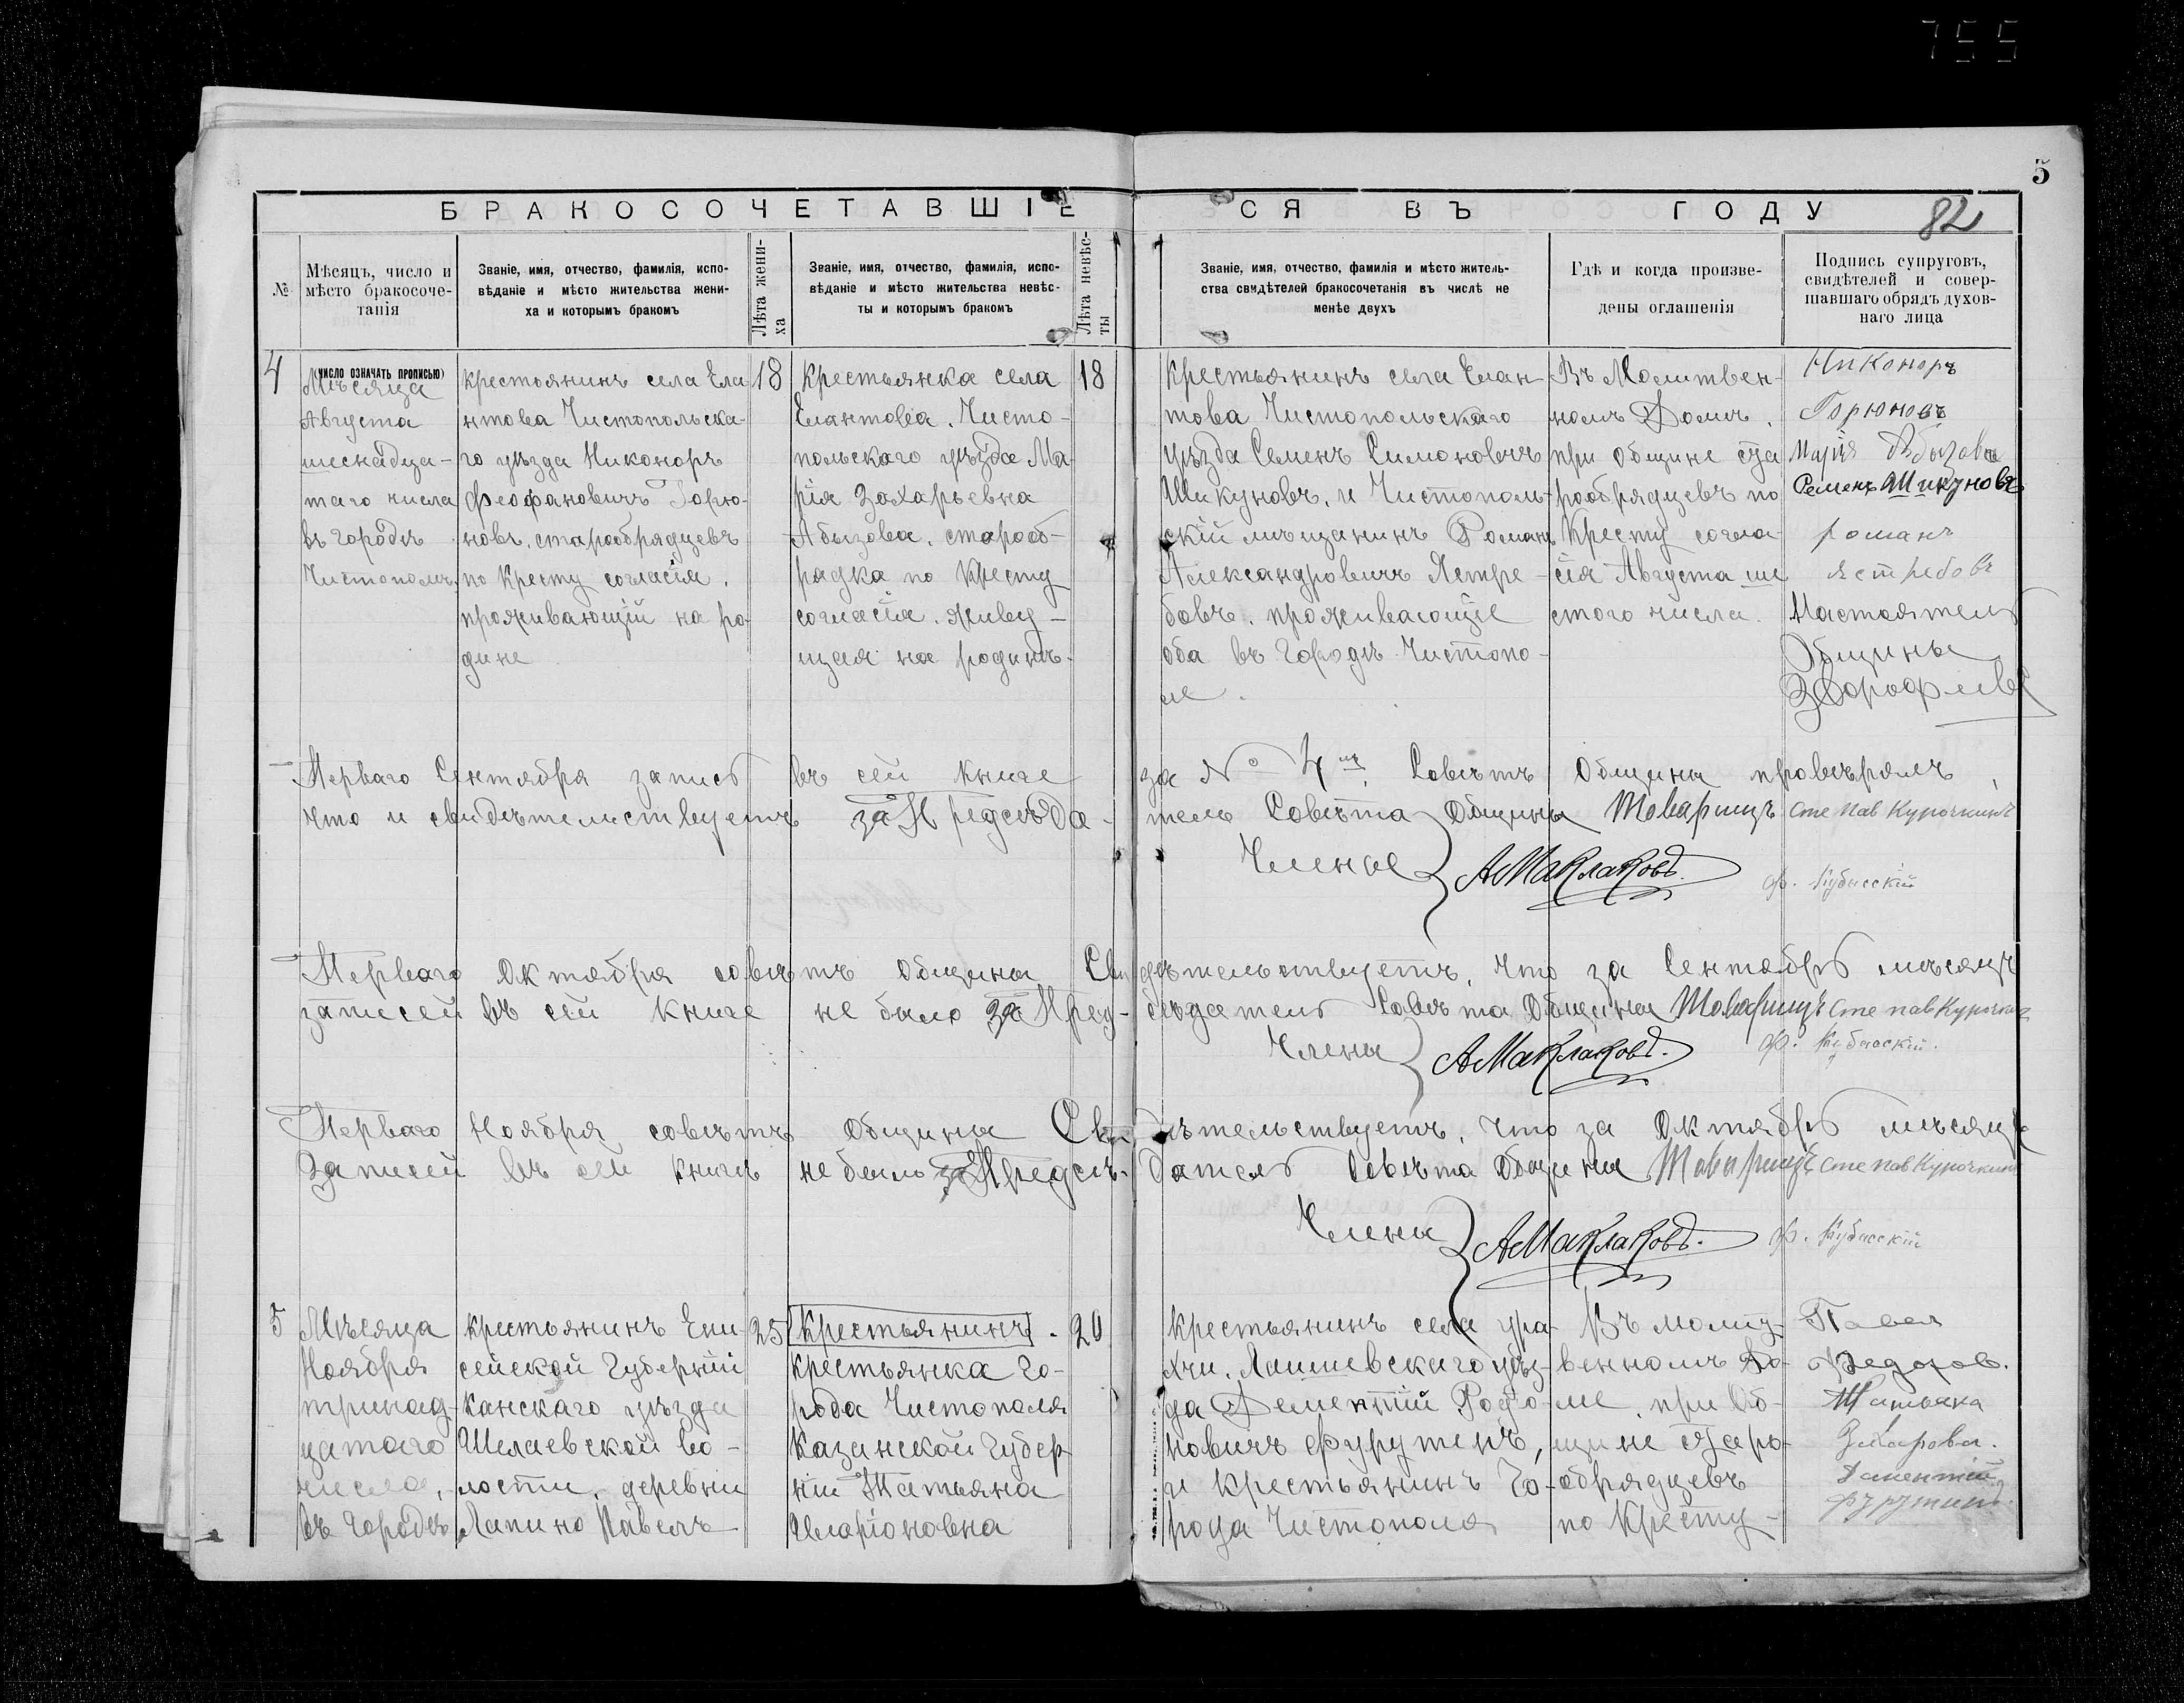 755
5
БРАКОСОЧЕТАВШІЕСЯ ВЪ ГОДУ
82
№
Мѣсяцъ, число и
мѣсто бракосоче-
танія
Званіе, имя, отчество, фамилія, испо-
вѣданіе и мѣсто жительства жени-
ха и которымъ бракомъ
Лѣта жени-
ха
Званіе, имя, отчество, фамилія, испо-
вѣданіе и мѣсто жительства невѣс-
ты и которымъ бракомъ
Лѣта невѣс-
ты
Званіе, имя, отчество, фамилія и мѣсто житель-
ства свидѣтелей бракосочетанія въ числѣ не
менѣе двухъ
Гдѣ и когда произве-
дены оглашенія
Подпись супруговъ,
свидѣтелей и совер-
шавшаго обрядъ духов-
наго лица
4
(число означать прописью)
Мѣсяца
Августа
шеснадца-
таго числа
въ городѣ
Чистополѣ
крестьянинъ села Ела
нтова Чистопольска-
го уѣзда Никоноръ
Феофановичъ Горю-
новъ, старообрядцевъ
по Кресту согласія,
проживающій на ро-
дине
18
Крестьянка села
Елантова, Чисто-
польскаго уѣзда Ма-
рія Захарьевна
Абызова, старооб-
рядка по Кресту
согласія, живу-
щая на родинѣ.
18
крестьянинъ села Елан-
това Чистопольскаго
уѣзда Семенъ Симоновичъ
Шикуновъ, и Чистополь-
скій мѣщанинъ Романъ
Александровичъ Ястре-
бовъ, проживающіе
оба въ городѣ Чистопо-
ле.
Въ Молитвен-
номъ Домѣ,
при Общине ста
рообрядцевъ по
Кресту согла-
сія Августа ше
стого числа.
Никоноръ
Горюновъ
Марія Абызова
Семенъ Шикуновъ
романъ
ястребовъ
Настоятель
Общины
Перваго Сентября запись въ сей книге за № 4мъ Совѣтъ Общины провѣрялъ,
что и свидѣтельствуетъ за Предсѣдатель Совѣта Общины Товарищъ Степав Курочкинъ
Члены АМаклаковъ. ф. Кубасскій
Перваго Октября совѣтъ Общины Свидѣтельствуетъ, что за Сентябрь мѣсяцъ
записей въ сей книге не было за Предсѣдатель Совѣта Общины Товарищъ Степав Курочкин
Члены АМаклаковъ. ф. Кубасскій.
Перваго Ноября совѣтъ Общины Свидѣтельствуетъ, что за Октябрь мѣсяцъ
Записей въ сей книгѣ не было за Предсѣдатель Совѣта Общины Товарищъ Степав Курочкин
Члены АМаклаковъ. ф. Кубасскій
5
Мѣсяца
Ноября
тринад-
цатаго
числа,
въ городѣ
крестьянинъ Ени-
сейской Губерніи
Канскаго уѣзда
Шелаевской во-
лости, деревни
Лапино Павелъ
25
Крестьянинъ.
крестьянка го-
рода Чистополя
Казанской Губер-
ніи Татьяна
Иларіоновна
20
крестьянинъ села ура-
хчи, Лаишевскаго уѣз-
да Дементій Родіо-
новичъ Фурутенъ,
и крестьянинъ Го-
рода Чистополя
Въ молит-
венномъ До-
ме, при Об-
щине старо-
обрядцевъ
по Кресту-
Павел
Федоров.
Татьяна
Дементій